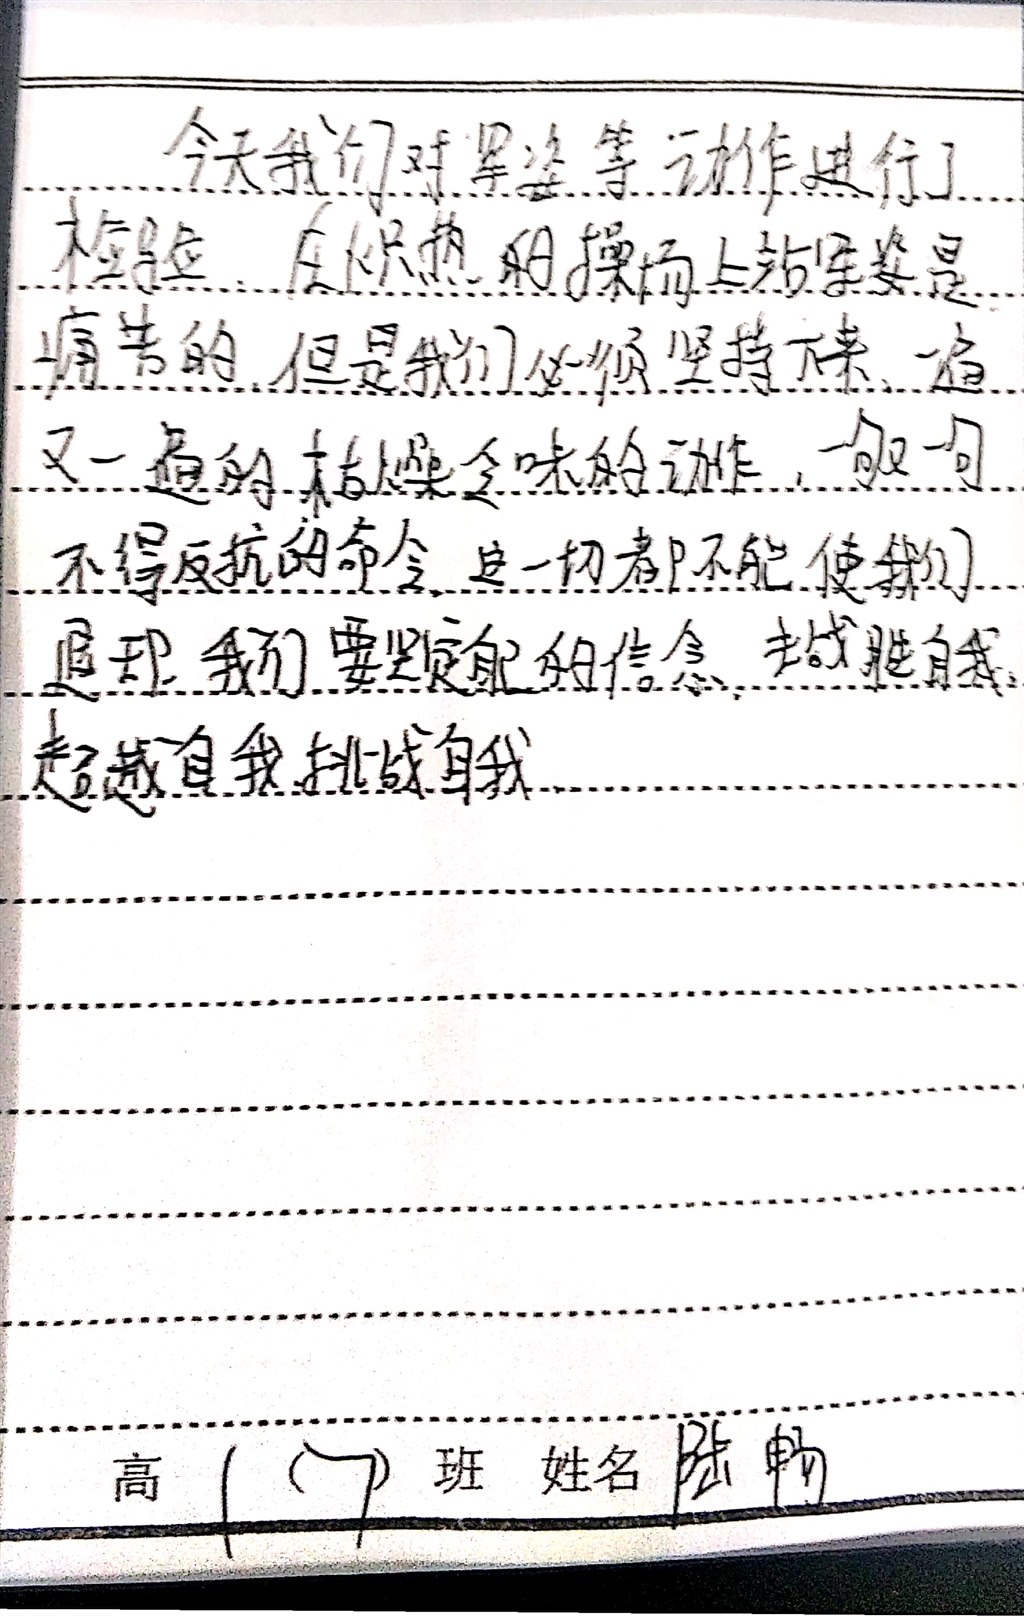 今天我们对军姿等动作进行了
检验、在炽热的操场上站军姿是
痛苦的、但是我们必须坚持下来、一遍
又一遍的枯燥乏味的动作、一句又一句
不得反抗的命令、这一切都不能使我们
退却、我们要坚定自己的信念、去战胜自我、
超越自我、挑战自我
高 1 (7) 班 姓名 陆畅